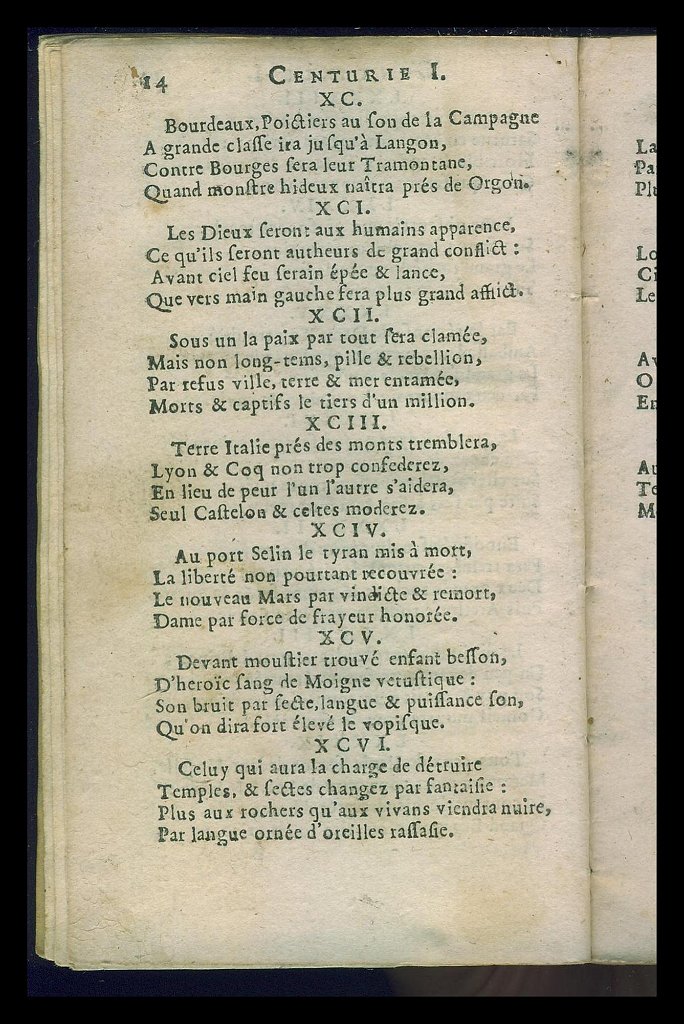 14 CENTURIE I.
XC.
Bourdeaux, Poictiers au ſon de la Campagne
A grande claſſe ira juſqu'à Langon,
Contre Bourges ſera leur Tramontane,
Quand monſtre hideux naîtra prés de Orgon.
XCI.
Les Dieux ſeront aux humains apparence,
Ce qu'ils ſeront autheurs de grand conflict :
Avant ciel ſeu ſerain épée & lance,
Que vers main gauche ſera plus grand afflict.
XCII.
Sous un la paix par tout ſera clamée,
Mais non long-tems, pille & rebellion,
Par refus ville, terre & mer entamée,
Morts & captifs le tiers d'un million.
XCIII.
Terre Italie prés des monts tremblera,
Lyon & Coq non trop confederez,
En lieu de peur l'un l'autre s'aidera,
Seul Caſtelon & celtes moderez.
XCIV.
Au port Selin le tyran mis à mort,
La liberté non pourtant recouvrée :
Le nouveau Mars par vindicte & remort,
Dame par force de frayeur honorée.
XCV.
Devant mouſtier trouvé enfant beſſon,
D'heroïc ſang de Moigne vetuſtique :
Son bruit par ſecte, langue & puiſſance ſon,
Qu'on dira fort élevé le vopiſque.
XCVI.
Celuy qui aura la charge de détruire
Temples, & ſectes changez par fantaiſie :
Plus aux rochers qu'aux vivans viendra nuire,
Par langue ornée d'oreilles raſſaſie.
La
Pa
Plu
Lo
Ci
Le
Av
O
En
Au
Te
M